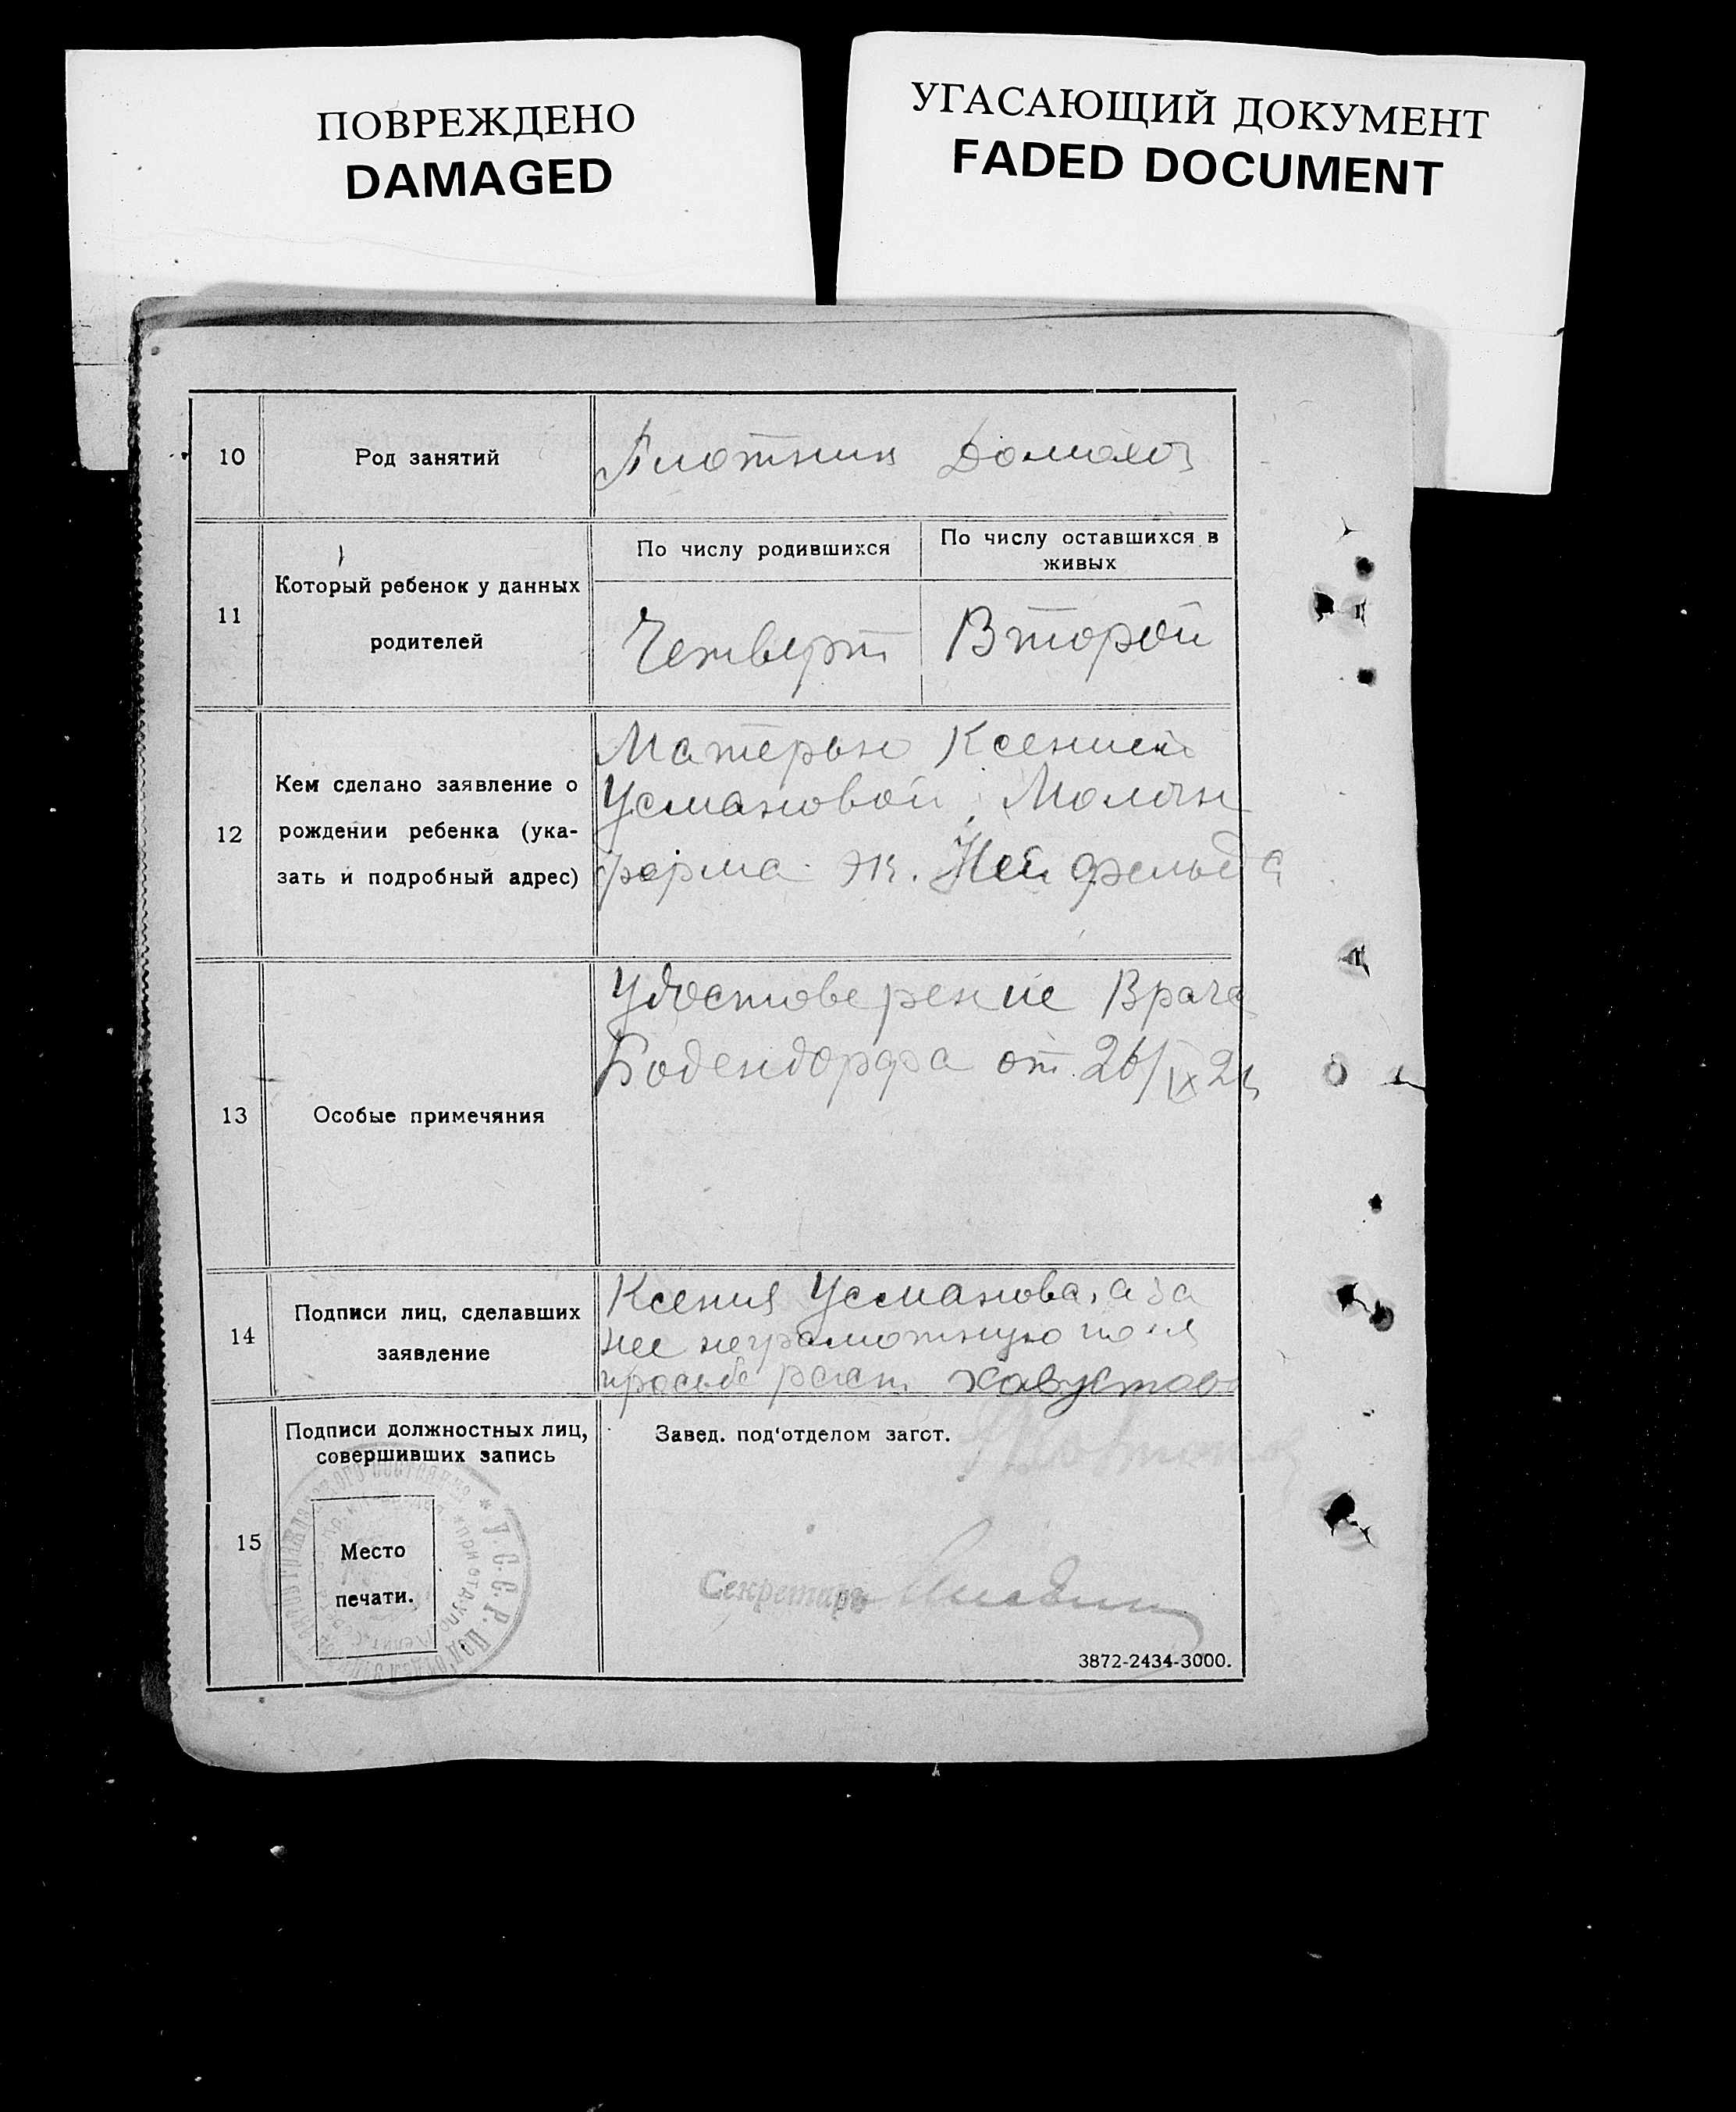 ПОВРЕЖДЕНО
DAMAGED
УГАСАЮЩИЙ ДОКУМЕНТ
FADED DOCUMENT
10 Род занятий Плотник Домохоз
11 Который ребенок у данных родителей
По числу родившихся
По числу оставшихся в живых
Четверт Второй
12 Кем сделано заявление о
рождении ребенка (ука-
зать и подробный адрес)
Матерью Ксенией
Усмановой, Молочн
ферма эк. Нейфельда
13 Особые примечяния
Удостоверение Врача
Бодендорфа от 26/IX
14 Подписи лиц, сделавших
заявление
Ксения Усманова, а за
нее неграмотную по ея
просьбе расп
15 Подписи должностных лиц,
совершивших запись
Место
печати.
У.С.С.Р.
Завед. под‘отделом загст.
Секретарь
3872-2434-3000.